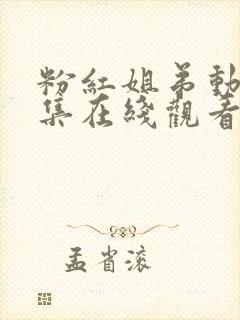 粉紅姐弟動
集在綫觀看
孟省滚